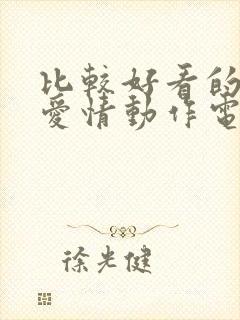 比較好看的
愛情動作電
徐光健